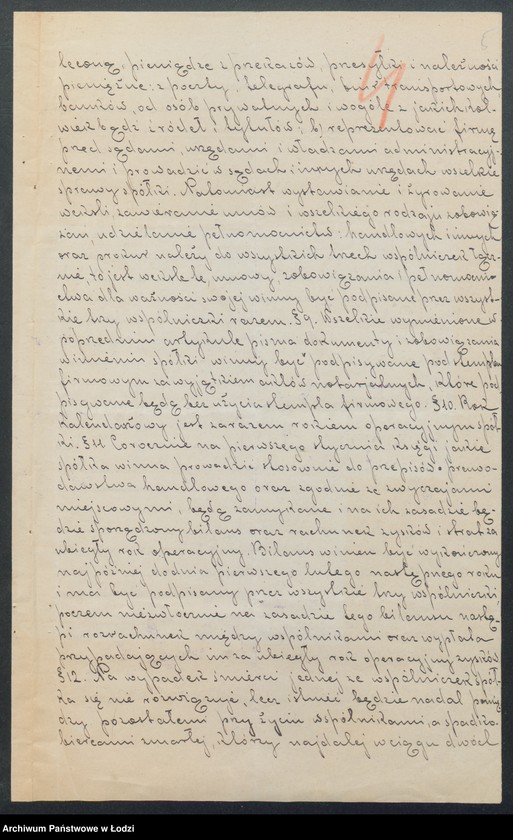 leconą, pieniądze z przekazów, przesyłki i należności
pieniężne: z poczty, telegrafu, biur transportowych
banków, od osób prywatnych i wogóle z jakichkol-
wiekbądź źródeł i tytułów; b) reprezentować firmę
przed sądami, urzędami i władzami administracyj-
nemi i prowadzić w sądach i innych urzędach wszelkie
sprawy spółki. Natomiast wystawianie i żyrowanie
weksli, zawieranie umów i wszelkiego rodzaju zobowią-
zań, udzielanie pełnomocnictw: handlowych i innych
oraz prokur należy do wszystkich trzech wspólniczek łącz-
nie, to jest weksle te, umowy, zobowiązania i pełnomocni-
ctwa dla ważności swojej winny być podpisane przez wszyst-
kie trzy wspólniczki razem. § 9. Wszelkie wymienione w
poprzednim artykule pisma dokumenty i zobowiązania
w imieniu spółki winny być podpisywane pod stemplem
firmowym za wyjątkiem aktów notarjalnych, które pod-
pisywane będą bez użycia stempla firmowego. § 10. Rok
kalendarzowy jest zarazem rokiem operacyjnym spół-
ki. § 11. Corocznie na pierwszego stycznia księgi jakie
spółka winna prowadzić stosownie do przepisów prawo-
dawstwa handlowego oraz zgodnie ze zwyczajami
miejscowymi, będą zamykane i na ich zasadzie bę-
dzie sporządzony bilans oraz rachunek zysków i strat za
ubiegły rok operacyjny. Bilans winien być wykończony
najpóźniej do dnia pierwszego lutego następnego roku
i ma być podpisany przez wszystkie trzy wspólniczki,
poczem niezwłocznie na zasadzie tego bilansu nastą-
pi rozrachunek między wspólnikami oraz wypłata
przypadających im za ubiegły rok operacyjny zysków.
§ 12. Na wypadek śmierci jednej ze wspólniczek spół-
ka się nie rozwiązuje, lecz istnieć będzie nadal pomię-
dzy pozostałemi przy życiu wspólnikami, a spadko-
biercami zmarłej, którzy najdalej w ciągu dwóch
Archiwum Państwowe w Łodzi